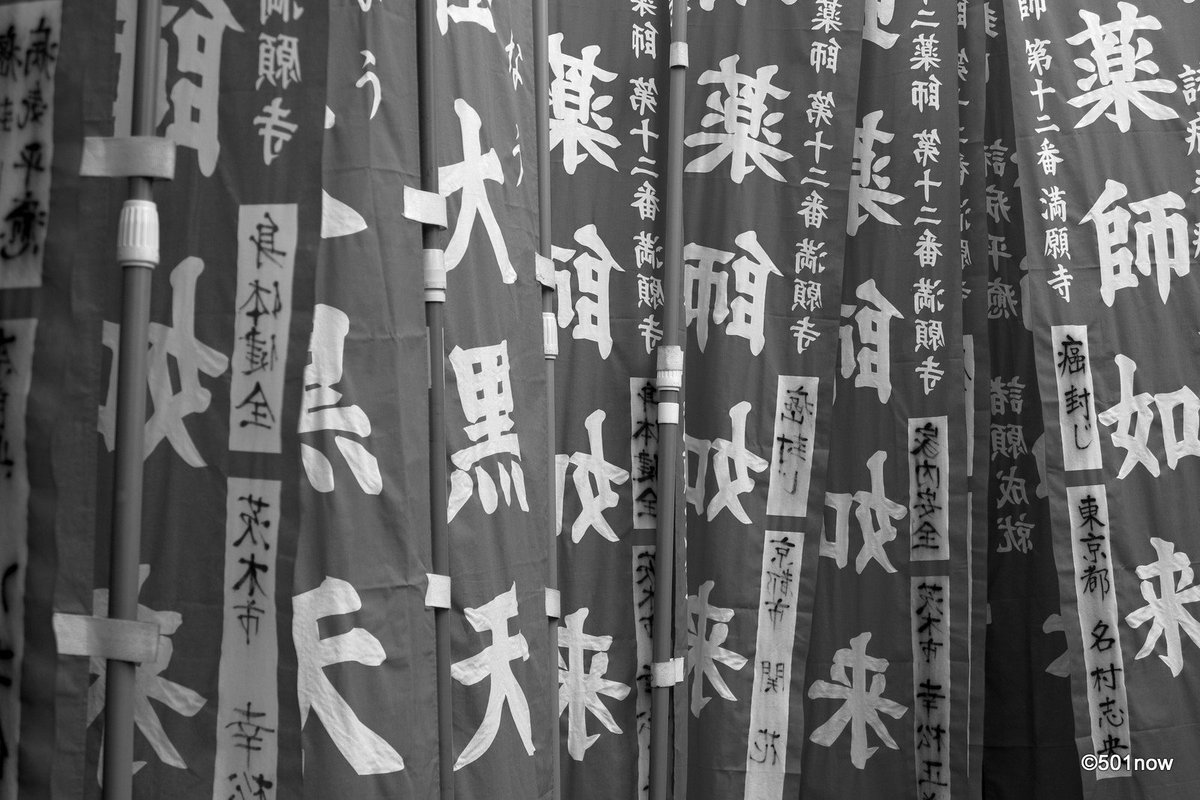 薬師如来
第十二番 満願寺
癌封じ
東京都 名村志央
諸病平癒
諸願成就
薬師 第十二番 満願寺
薬師如来
家内安全
茨木市 幸松正
薬師 第十二番 満願寺
薬師如来
癌封じ
京都市 関 花
薬師 第十二番 満願寺
薬師如来
身体健全
茨木市
大黒天
黒天
満願寺
師如来
身体健全
茨木市 幸松
病気平癒
©501now